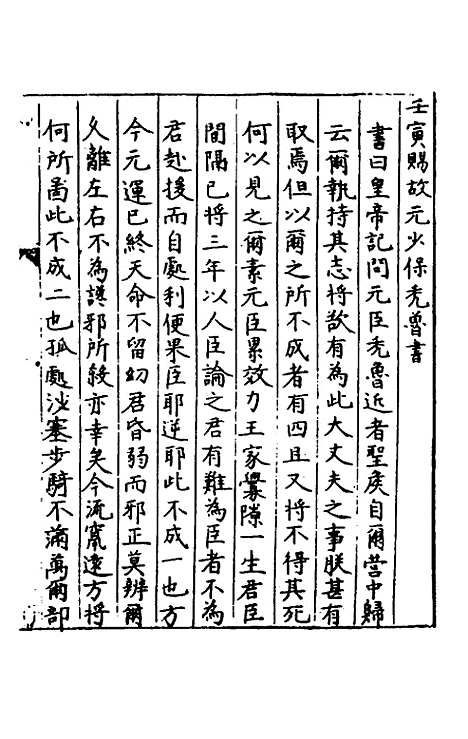 壬寅賜故元少保禿魯書
書曰皇帝記問元臣禿魯近者聖庱自爾营中歸
云爾執持其志將欲有為此大丈夫之事朕甚有
取焉但以爾之所不成者有四且又將不得其死
何以見之爾素元臣累效力王家釁隙一生君臣
間隔已將三年以人臣論之君有難為臣者不為
君赴援而自處利便果臣耶逆耶此不成一也方
今元運已終天命不留幼君昏弱而邪正莫辨爾
乆離左右不為讒邪所殺亦幸矣今流竄逺方將
何所啚此不成二也孤處沙塞步騎不滿萬爾部